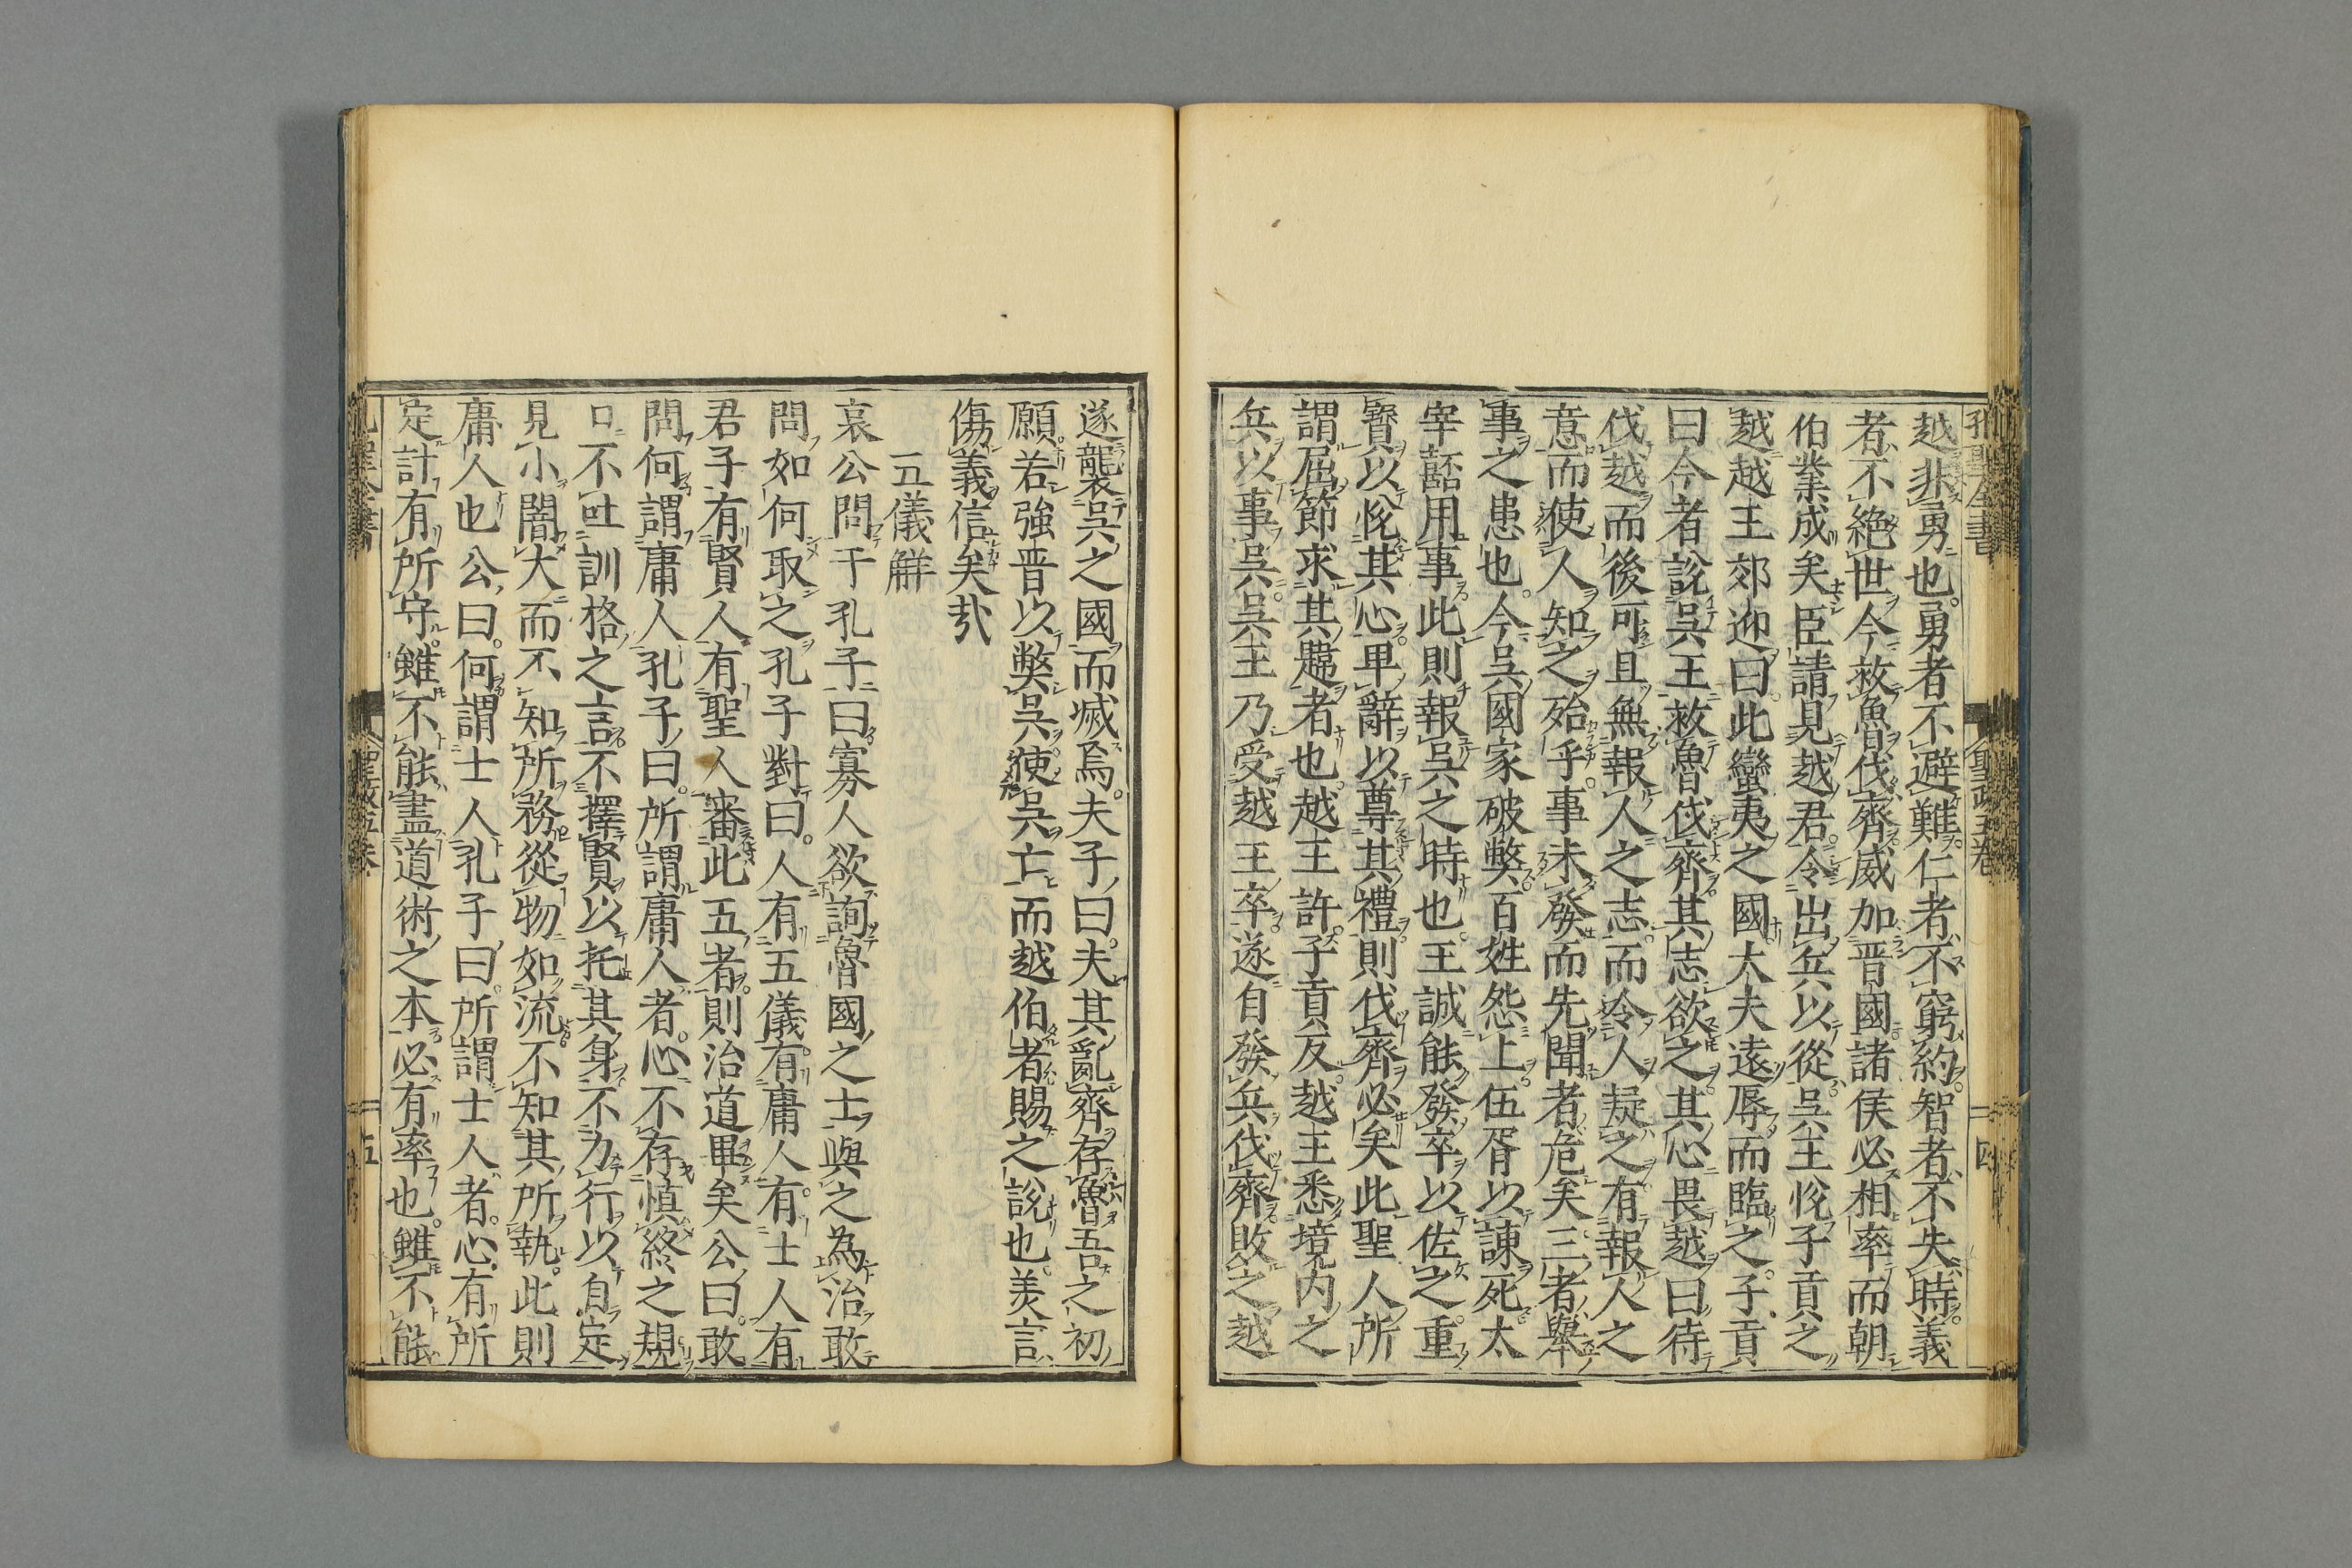 越非勇也。勇者不避難。仁者不窮約。智者不失時。義
者不絶世今救魯伐齊威加晋國諸侯必相率而朝
伯業成矣臣請見越君。令出兵以從吳王悅子貢之
越越王郊迎曰。此蠻夷之國大夫遠辱而臨之。子貢
曰今者說吳王救魯伐齊。其志欲之。其心畏越曰待
伐越而後可且無報人之志。而令人疑之有報人之
意而使人知之殆乎。事未發而先聞者危矣三者舉
事之患也。今吳國家破弊百姓怨上伍胥以諫死太
宰嚭用事此則報吳之時也。王誠能發卒以佐之。重
寶以悅其心。卑辭以尊其禮則伐齊必矣此聖人所
謂屈節求其遠者也。越王許。子貢反。越王悉境内之
兵以事吳。吳王乃受越王卒。遂自發兵伐齊。敗之越
遂襲吳之國而滅焉。夫子曰。夫其亂齊存魯吾之初
願。若強晋以弊吳。使吳亡而越伯者賜之說也。美言
傷義信矣哉
五儀解
哀公問于孔子曰。寡人欲詢魯國之士與之為治敢
問如何取之孔子對曰。人有五儀。有庸人。有士人有
君子有賢人有聖人審此五者。則治道畢矣公曰。敢
問何謂庸人孔子曰。所謂庸人者。心不存慎終之規
口不吐訓格之言不擇賢以托其身不力行以自定
見小闇大而不知所務從物如流。不知其所執。此則
庸人也公曰。何謂士人孔子曰。所謂士人者。心有所
定計有所守。雖不能盡道術之本必有率也。雖不能
孔聖全書
聖政五卷
四
聖政五卷
五